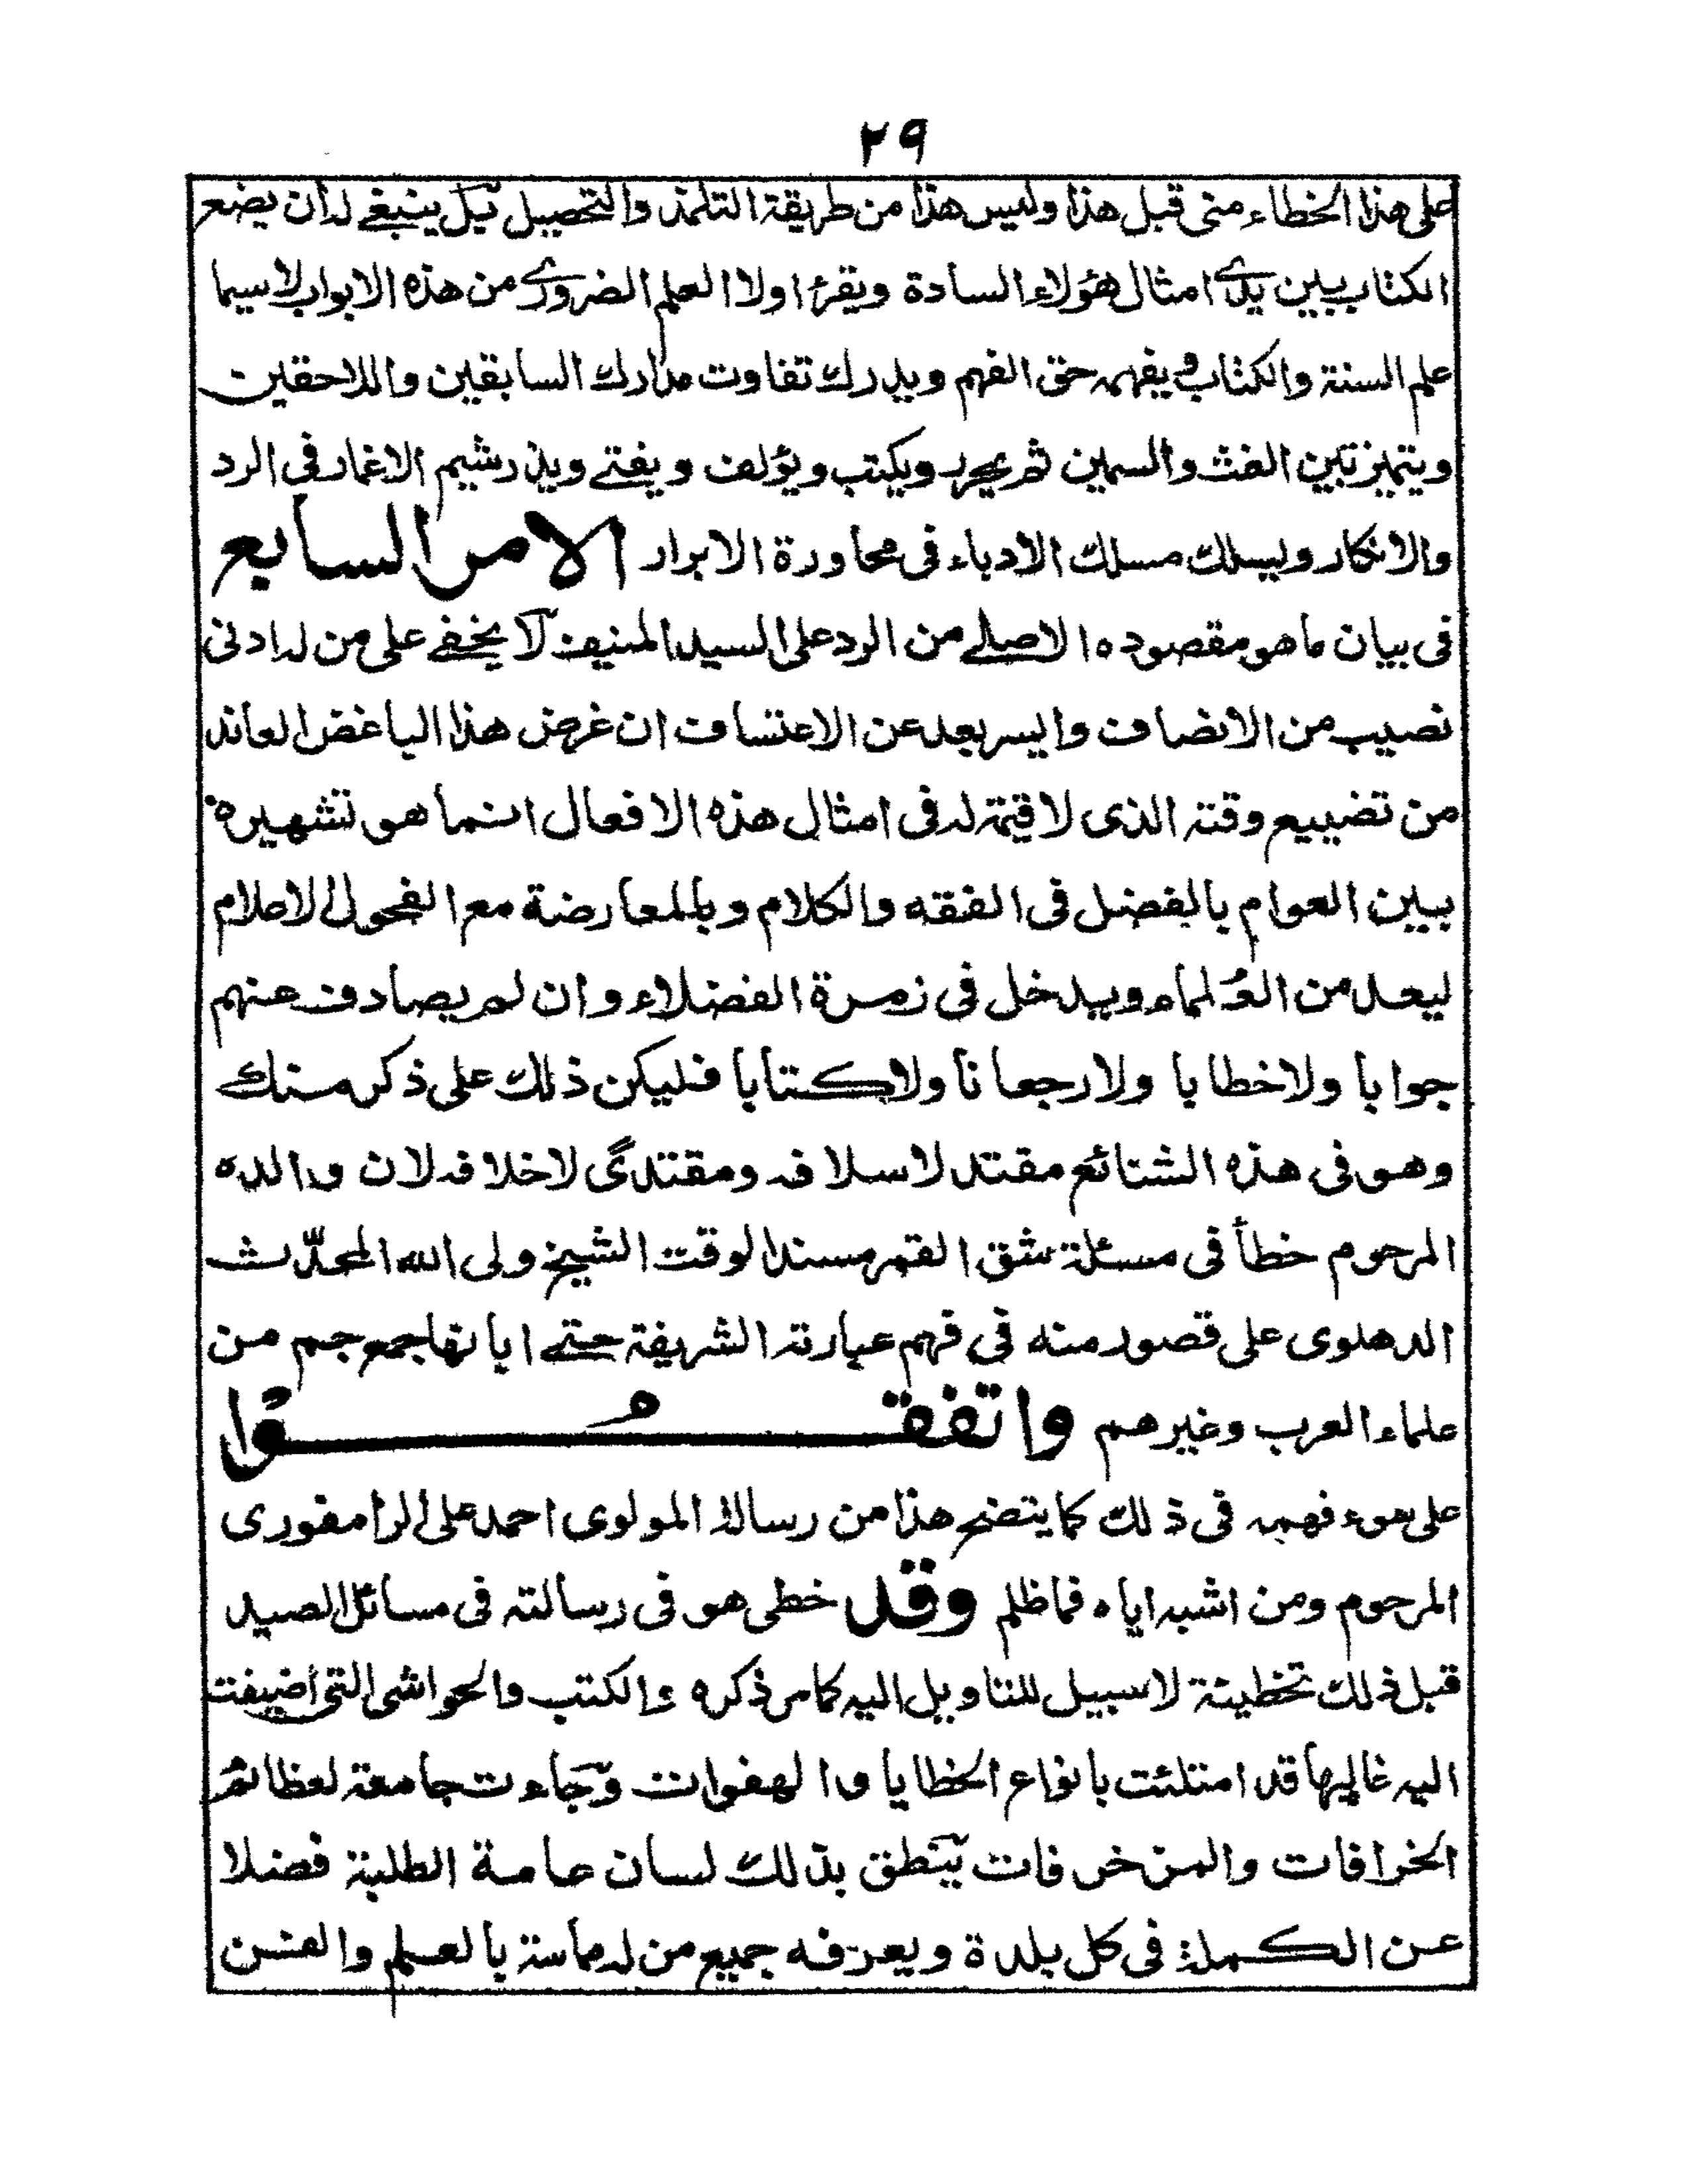 ٢٩
على هذا الخطاء منى قبل هذا وليس هذا من طريقة التلمذ والتحصيل بل ينبغے له ان يضع
الكتاب بين يدے امثال هؤلاء السادة ويقرء اولا العلم الضرورے من هذه الابواب لاسيما
علم السنة والكتاب ويفهمه حق الفهم ويدرك تفاوت مدارك السابقين واللاحقين
ويتميز بين الغث والسمين ثم يحرر ويكتب ويؤلف ويفتے ويذر شيم الاغمار فى الرد
والانكار ويسلك مسلك الادباء فى محاورة الابرار الامر السابع
فى بيان ما هو مقصوده الاصلے من الرد على السيد المنيف لا يخفے على من له ادنى
نصيب من الانصاف وايسر بعد عن الاعتساف ان غرض هذا الباغض العاند
من تضييع وقته الذى لا قيمة له فى امثال هذه الافعال انما هو تشهيره
بين العوام بالفضل فى الفقه والكلام وبالمعارضة مع الفحول الاعلام
ليعد من العلماء ويدخل فى زمرة الفضلاء وان لم يصادف عنهم
جوابا ولا خطابا ولا رجعانا ولا كتابا فليكن ذلك على ذكر منك
وهو فى هذه الشنائع مقتد لاسلافه ومقتدى لاخلافه لان والده
المرحوم خطأ فى مسئلة شق القمر مسند الوقت الشيخ ولى الله المحدّث
الدهلوى على قصور منه فى فهم عبارته الشريفة حتے ابانها جمع جم من
علماء العرب وغيرهم واتفقوا
على سوء فهمه فى ذلك كما يتضح هذا من رسالة المولوى احمد على الرامفورى
المرحوم ومن اشبه اباه فما ظلم وقد خطى هو فى رسالته فى مسائل الصيد
قبل ذلك تخطيئة لا سبيل للتاويل اليه كما مر ذكره والكتب والحواشى التى اضيفت
اليه غالبها قد امتلئت بانواع الخطايا والهفوات وجاءت جامعة لعظائم
الخرافات والمزخرفات ينطق بذلك لسان عامة الطلبة فضلا
عن الكملة فى كل بلدة ويعرفه جميع من له مماسة بالعلم والفن